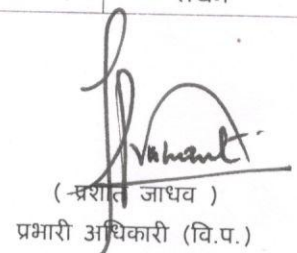 ( प्रशांत जाधव )
प्रभारी अधिकारी (वि.प.)